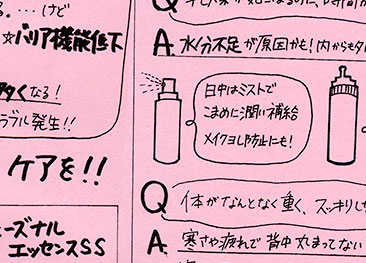 る。…けど
☆バリア機能低下
タくなる!
ラブル発生!!
ケアを!!
ーズナル
エッセンスSS
Q
A. 水分不足が原因かも!内からも
日中はミストで
こまめに潤い補給
メイクヨレ防止にも!
Q 体がなんとなく重く、スッキリし
A. 寒さや疲れで背中丸まってない